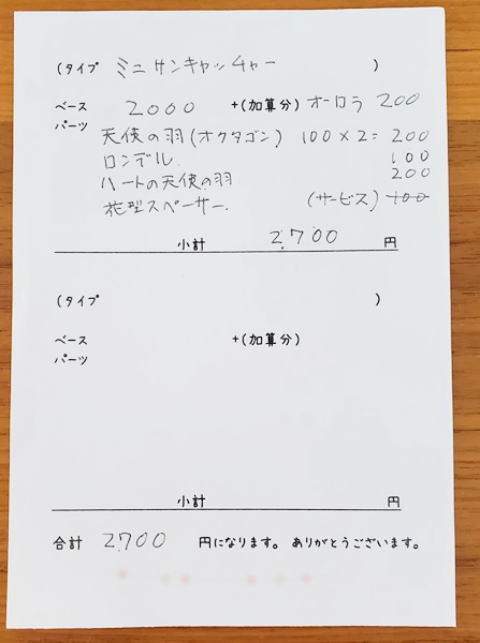 (タイプ ミニサンキャッチャー )
ベース 2000 +(加算分) オーロラ 200
パーツ
天使の羽(オクタゴン) 100×2= 200
ロンデル 100
ハートの天使の羽 200
花型スペーサー (サービス) 100
小計 2,700 円
(タイプ )
ベース +(加算分)
パーツ
小計 円
合計 2,700 円になります。 ありがとうございます。